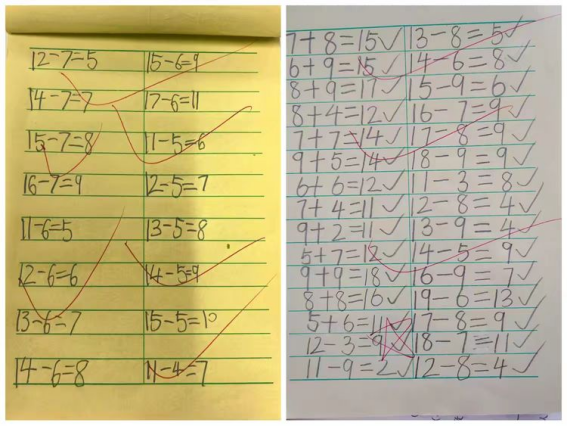 12-7=5 15-6=9
14-7=7 17-6=11
15-7=8 11-5=6
16-7=9 12-5=7
11-6=5 13-5=8
12-6=6 14-5=9
13-6=7 15-5=10
14-6=8 11-4=7
7+8=15✓ 13-8=5✓
6+9=15✓ 14-6=8✓
8+9=17✓ 15-9=6✓
8+4=12✓ 16-7=9✓
7+7=14✓ 17-8=9✓
9+5=14✓ 18-9=9✓
6+6=12✓ 11-3=8✓
7+4=11✓ 12-8=4✓
9+2=11✓ 13-9=4✓
5+7=12✓ 14-5=9✓
9+9=18✓ 16-9=7✓
8+8=16✓ 19-6=13✓
5+6=11✓ 17-8=9✓
12-3=9✓ 18-7=11✓
11-9=2✓ 12-8=4✓